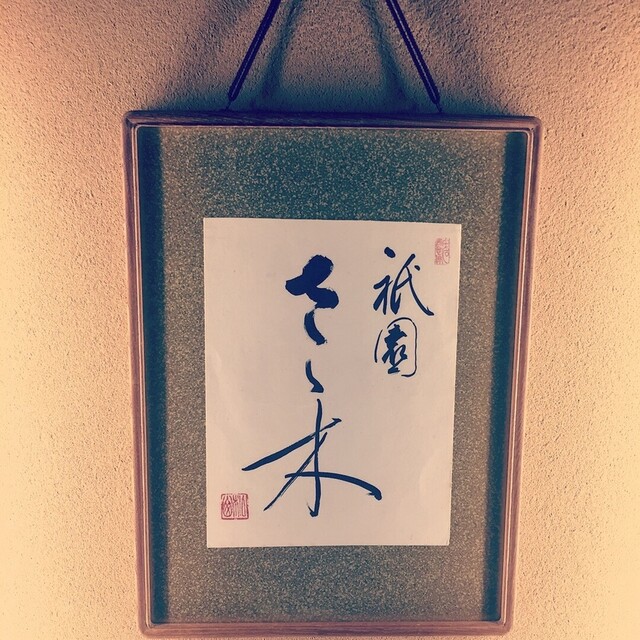 祇園
さゝ木